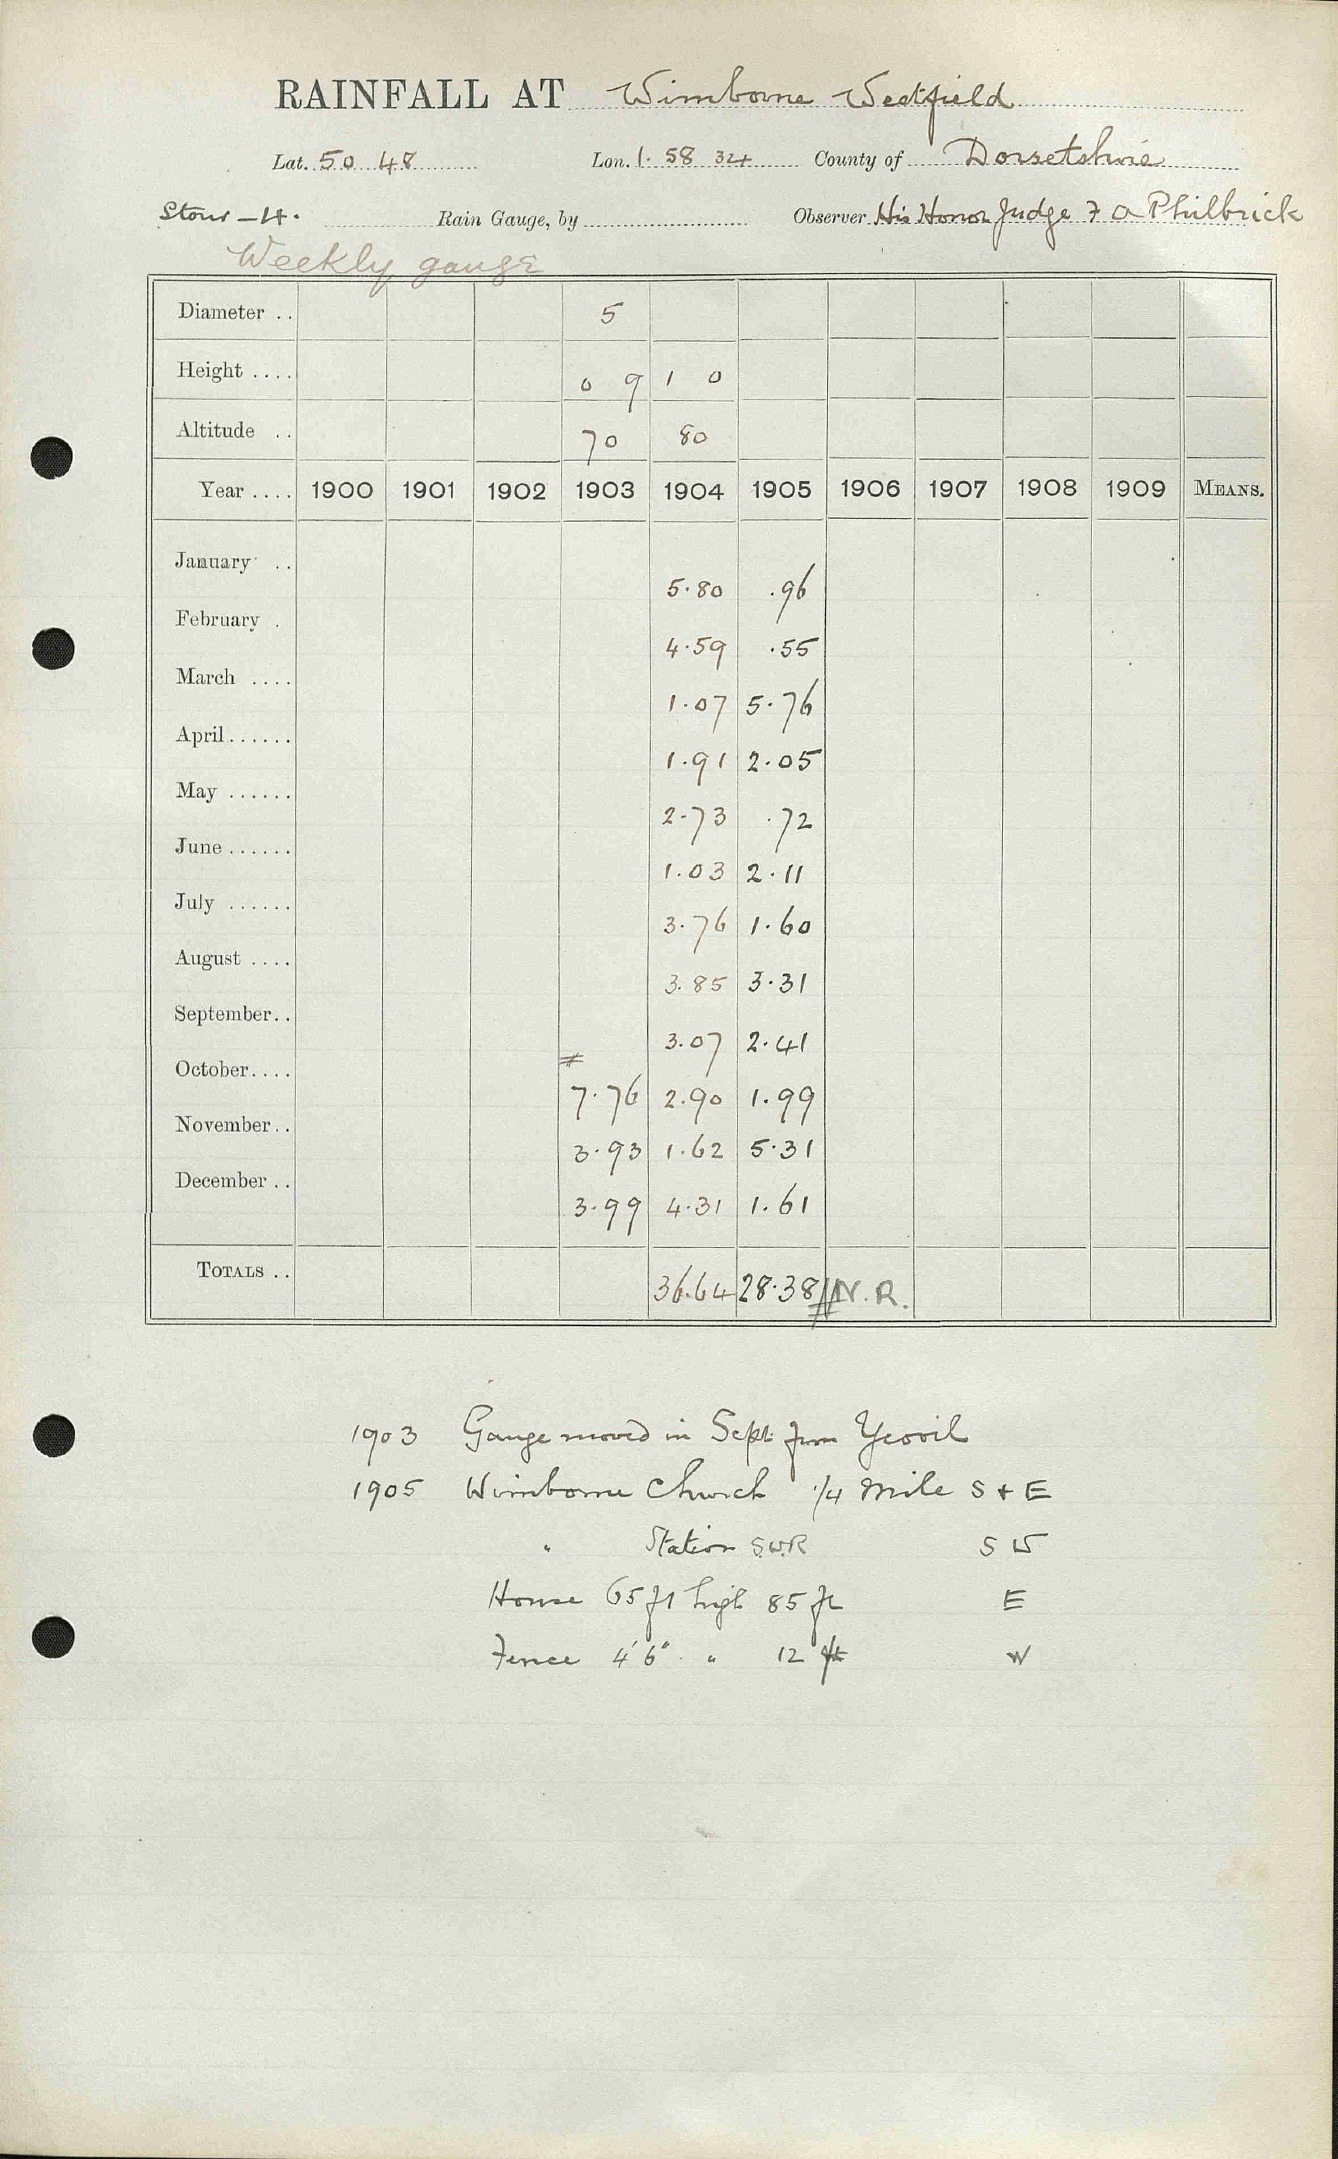 RAINFALL AT Wimborne Westfield
Lat. 50 48 Lon. 1. 58 34 County of Dorsetshire
Stour - H. Rain Gauge, by Observer His Honor Judge F A Philbrick
Weekly gauge
Diameter .. 5
Height .... 0 9 1 0
Altitude .. 70 80
Year .... 1900 1901 1902 1903 1904 1905 1906 1907 1908 1909 MEANS.
January ..
5.80 .96
February .
4.59 .55
March ....
1.07 5.76
April......
1.91 2.05
May ......
2.73 .72
June ......
1.03 2.11
July ......
3.76 1.60
August ....
3.85 3.31
September..
3.07 2.41
October....
7.76 2.90 1.99
November..
3.93 1.62 5.31
December ..
3.99 4.31 1.61
TOTALS ..
36.64 28.38 // N.R.
1903 Gauge moved in Sept from Yeovil
1905 Wimborne Church 1/4 mile S + E
" Station S.W.R S W
House 65 ft high 85 ft E
Fence 4' 6" " 12 ft W